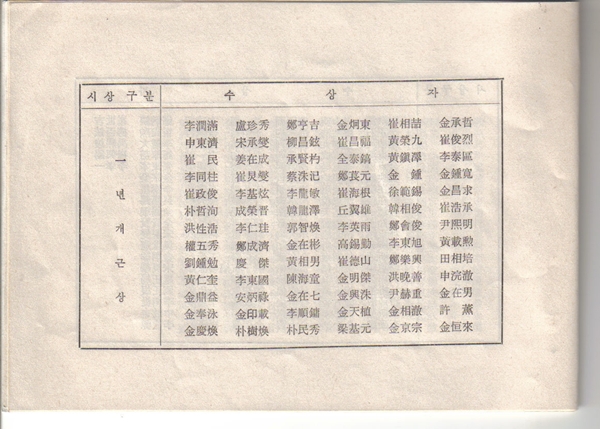 시상구분 수 상 자
일년개근상
李潤滿 盧珍秀 鄭亨吉 金炯東 崔相喆 金承哲
申東濟 宋承燮 柳昌鉉 崔昌福 黃榮九 崔俊烈
崔民 姜在成 承賢杓 全泰鎬 黃鎭澤 李泰區
李同柱 崔炅燮 蔡洙汜 鄭萇元 金鍾 金鍾寬
崔政俊 李基炫 李龍敏 崔海根 徐範錫 金昌求
朴哲洵 成榮晋 韓龍澤 丘翼雄 韓相俊 崔浩承
洪性浩 李仁珪 郭智煥 李英雨 鄭會俊 尹熙明
權五秀 鄭成濟 金在彬 高錫勳 李東旭 黃載勳
劉鍾勉 慶傑 黃相男 崔德山 鄭樂興 田相培
黃仁奎 李東國 陳海童 金明傑 洪晚善 申浣澈
金鼎益 安炳祿 金在七 金興洙 尹赫重 金在男
金奉泳 金印載 李順鏞 金天植 金相澈 許薰
金慶煥 朴樹煥 朴民秀 梁基元 金京宗 金恒來